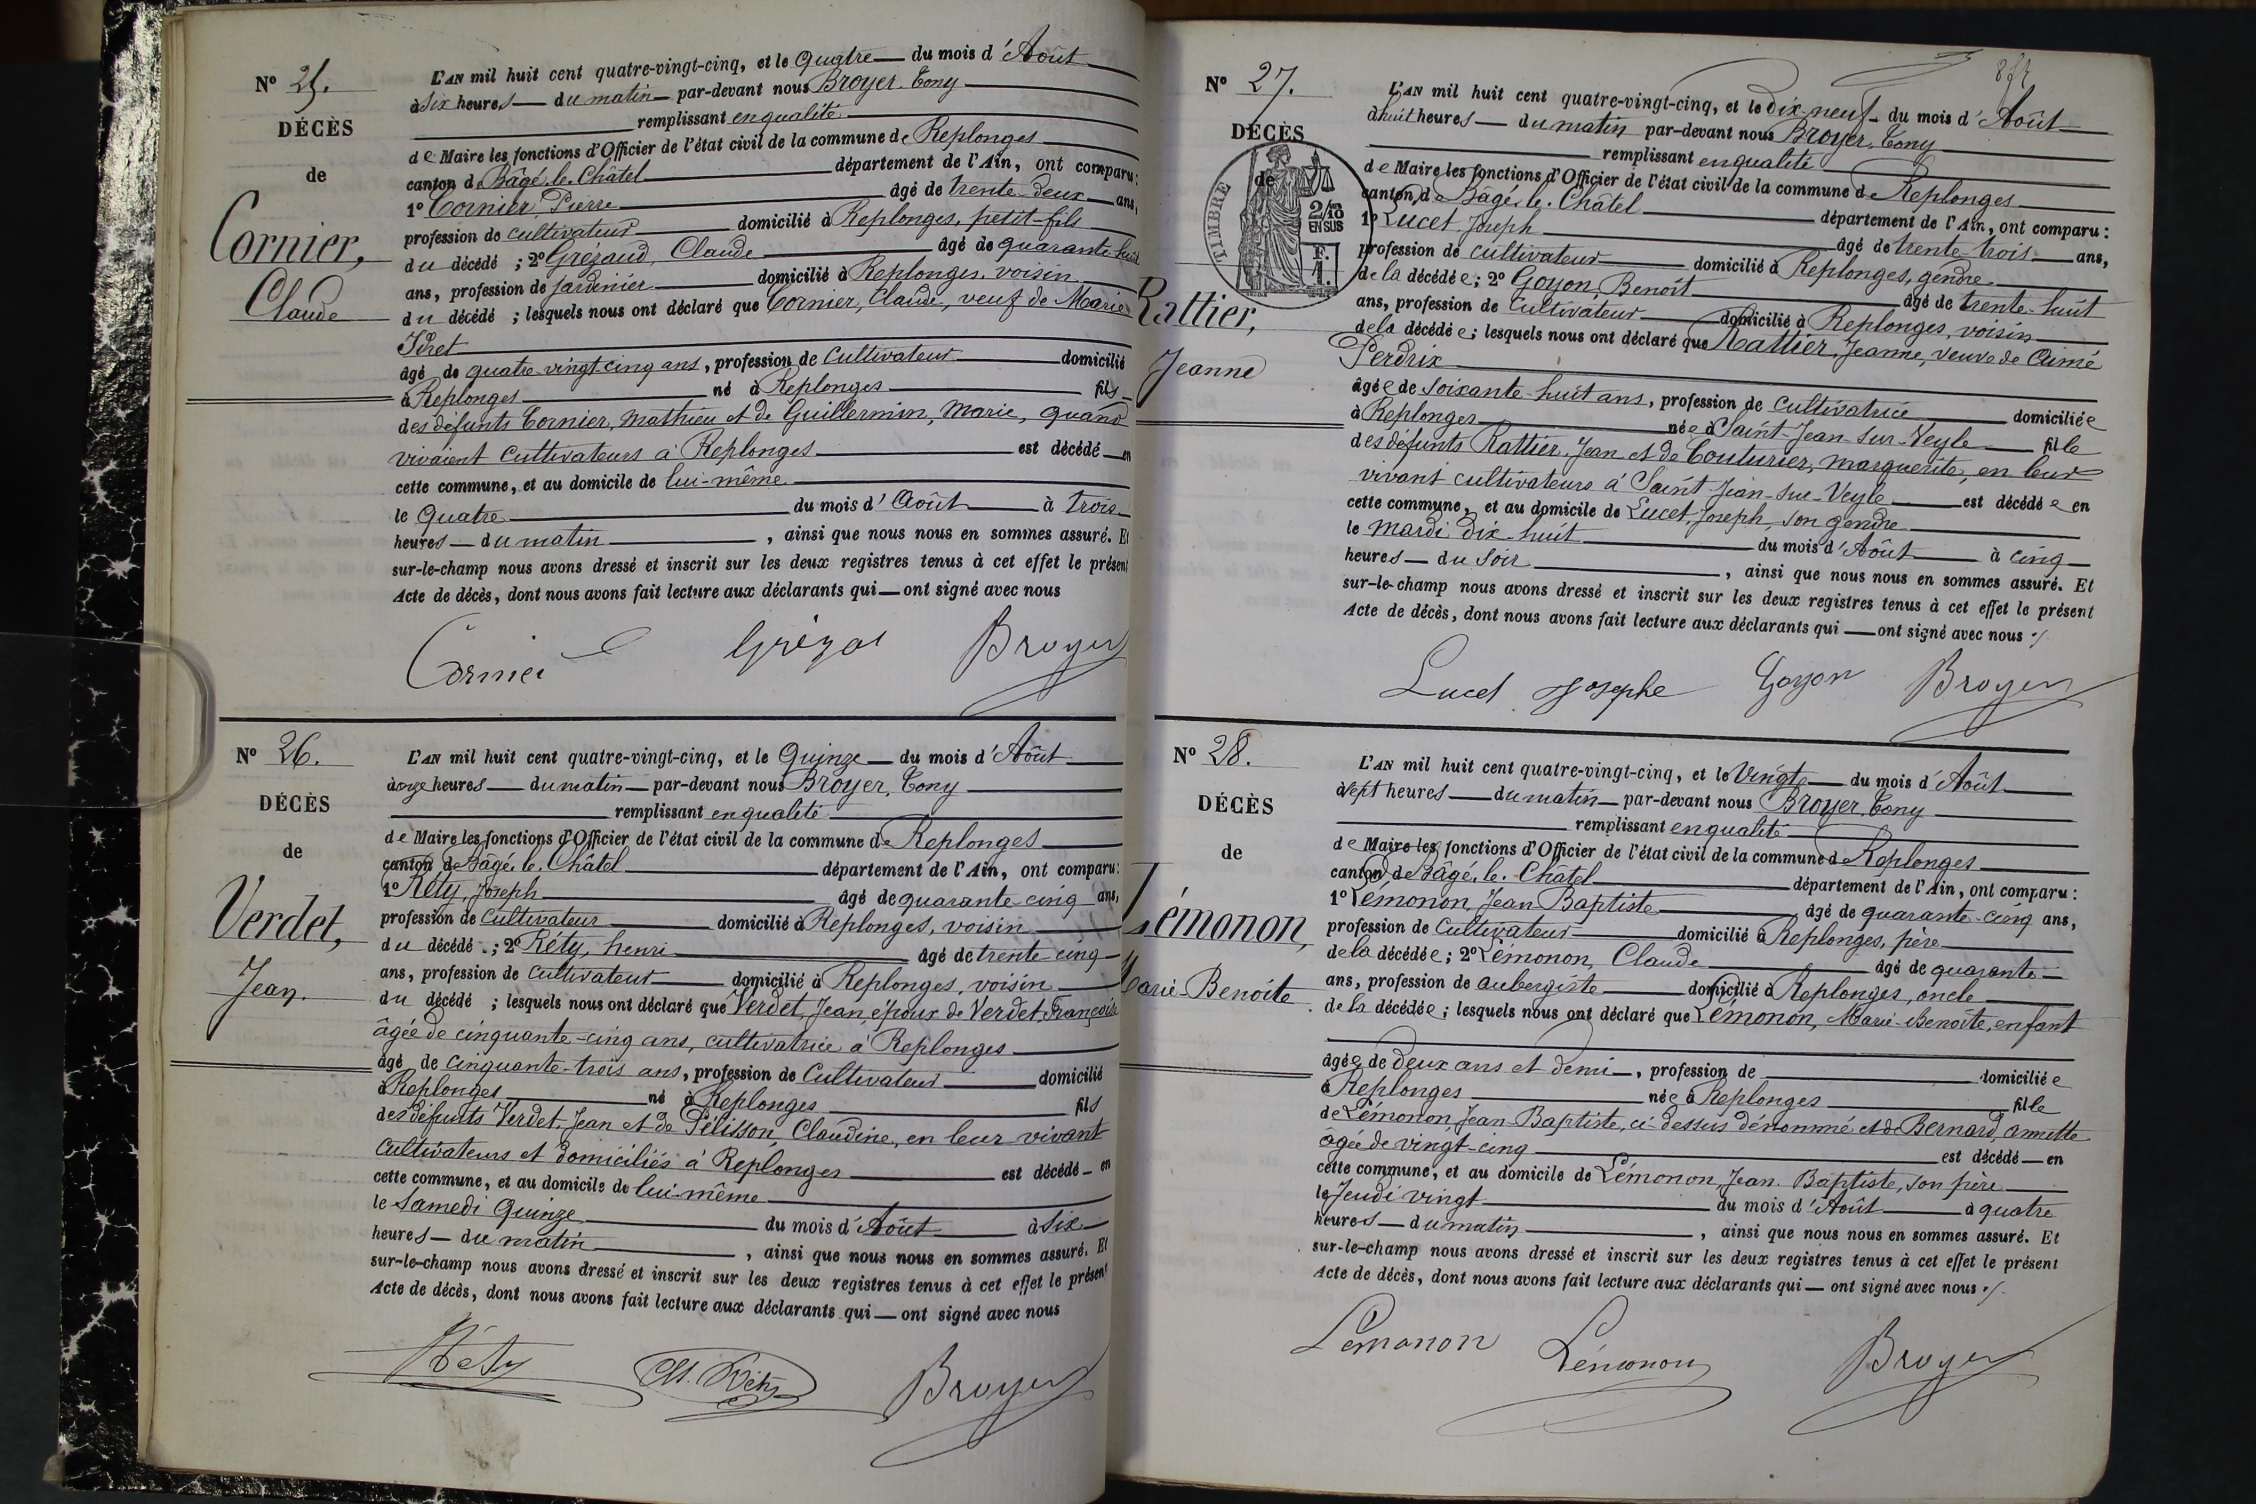 N° 25.
DÉCÈS
de
Cornier,
Claude
L'AN mil huit cent quatre-vingt-cinq, et le Quatre du mois d'Août
à six heures du matin par-devant nous Broyer, Tony
remplissant en qualité
de Maire les fonctions d'Officier de l'état civil de la commune de Replonges
canton de Bâgé-le-Châtel département de l'Ain, ont comparu:
1° Cornier, Pierre âgé de trente-deux ans,
profession de cultivateur domicilié à Replonges, petit-fils
du décédé ; 2° Grézaud, Claude âgé de quarante-huit
ans, profession de jardinier domicilié à Replonges, voisin
du décédé ; lesquels nous ont déclaré que Cornier, Claude, veuf de Marie
âgé de quatre-vingt-cinq ans, profession de cultivateur domicilié
à Replonges né à Replonges fils
des défunts Cornier, Mathieu et de Guillermin, Marie, quand
vivaient cultivateurs à Replonges est décédé en
cette commune, et au domicile de lui-même
le Quatre du mois d'Août à trois
heures du matin , ainsi que nous nous en sommes assuré. Et
sur-le-champ nous avons dressé et inscrit sur les deux registres tenus à cet effet le présent
Acte de décès, dont nous avons fait lecture aux déclarants qui ont signé avec nous
Cornier Broyer
N° 26.
DÉCÈS
de
Verdet,
Jean.
L'AN mil huit cent quatre-vingt-cinq, et le Quinze du mois d'Août
à onze heures du matin par-devant nous Broyer, Tony
remplissant en qualité
de Maire les fonctions d'Officier de l'état civil de la commune de Replonges
canton de Bâgé-le-Châtel département de l'Ain, ont comparu:
1° Réty, Joseph âgé de quarante-cinq ans,
profession de cultivateur domicilié à Replonges, voisin
du décédé ; 2° Réty, henri âgé de trente-cinq
ans, profession de cultivateur domicilié à Replonges, voisin
du décédé ; lesquels nous ont déclaré que Verdet, Jean, époux de Verdet, Françoise
âgée de cinquante-cinq ans, cultivatrice à Replonges
âgé de cinquante-trois ans, profession de Cultivateur domicilié
à Replonges né à Replonges fils
des défunts Verdet, Jean et de Pélisson, Claudine, en leur vivant
cultivateurs et domiciliés à Replonges est décédé en
cette commune, et au domicile de lui-même
le Samedi Quinze du mois d'Août à six
heures du matin , ainsi que nous nous en sommes assuré. Et
sur-le-champ nous avons dressé et inscrit sur les deux registres tenus à cet effet le présent
Acte de décès, dont nous avons fait lecture aux déclarants qui ont signé avec nous
Réty Réty Broyer
N° 27.
DÉCÈS
de
TIMBRE
2/10 EN SUS
F. 1.
Rattier,
Jeanne
L'AN mil huit cent quatre-vingt-cinq, et le dix-neuf du mois d'Août
à huit heures du matin par-devant nous Broyer, Tony
remplissant en qualité
de Maire les fonctions d'Officier de l'état civil de la commune de Replonges
canton de Bâgé-le-Châtel département de l'Ain, ont comparu:
1° Lucet, Joseph âgé de trente-trois ans,
profession de cultivateur domicilié à Replonges, gendre
de la décédée; 2° Goyon, Benoît âgé de trente-huit
ans, profession de cultivateur domicilié à Replonges, voisin
de la décédée; lesquels nous ont déclaré que Rattier, Jeanne, veuve de Aimé
Perdrix
âgée de soixante-huit ans, profession de cultivatrice domiciliée
à Replonges née à Saint-Jean-sur-Veyle fille
des défunts Rattier, Jean et de Couturier, Marguerite, en leur
vivant cultivateurs à Saint-Jean-sur-Veyle est décédée en
cette commune, et au domicile de Lucet, Joseph, son gendre
le mardi dix-huit du mois d'Août à cinq
heures du soir , ainsi que nous nous en sommes assuré. Et
sur-le-champ nous avons dressé et inscrit sur les deux registres tenus à cet effet le présent
Acte de décès, dont nous avons fait lecture aux déclarants qui ont signé avec nous ./.
Lucet Josephe Goyon Broyer
N° 28.
DÉCÈS
de
Lémonon,
Marie-Benoîte
L'AN mil huit cent quatre-vingt-cinq, et le Vingt du mois d'Août
à sept heures du matin par-devant nous Broyer, Tony
remplissant en qualité
de Maire les fonctions d'Officier de l'état civil de la commune de Replonges
canton de Bâgé-le-Châtel département de l'Ain, ont comparu:
1° Lémonon, Jean Baptiste âgé de quarante-cinq ans,
profession de cultivateur domicilié à Replonges, père
de la décédée; 2° Lémonon, Claude âgé de quarante
ans, profession de aubergiste domicilié à Replonges, oncle
de la décédée; lesquels nous ont déclaré que Lémonon, Marie-Benoîte, enfant
âgée de deux ans et demi, profession de domiciliée
à Replonges née à Replonges fille
de Lémonon, Jean Baptiste, ci-dessus dénommé et de Bernard, annette
âgée de vingt-cinq est décédé en
cette commune, et au domicile de Lémonon, Jean Baptiste, son père
le Jeudi vingt du mois d'Août à quatre
heures du matin , ainsi que nous nous en sommes assuré. Et
sur-le-champ nous avons dressé et inscrit sur les deux registres tenus à cet effet le présent
Acte de décès, dont nous avons fait lecture aux déclarants qui ont signé avec nous ./.
Lémonon Lémonon Broyer